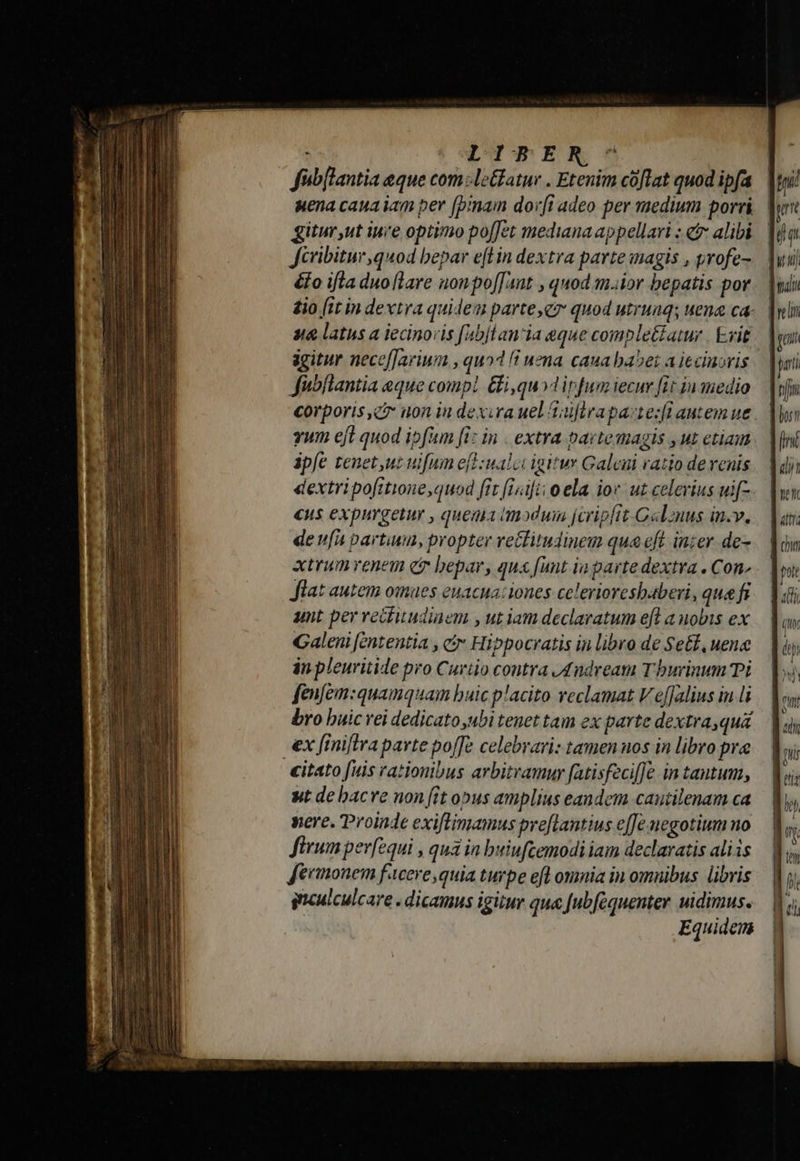 LIBER
ſubſtantia æque complectatur . Etenim cōſtat quod ipſa
uena caua iam per ſpinam dorſi adeo per medium porri
gitur,ut iure optimo poſſet mediana appellari : & alibi
ſcribitur,quod hepar eſt in dextra parte magis , profe-
cto iſta duo ſtare non poſſunt , quod maior hepatis por
tio ſit in dextra quidem parte,& quod utrunq; uenæ ca-
uæ latus a iecinoris ſubſtantia æque complectatur . Erit
igitur neceſſarium , quod ſi uena caua habet a iecinoris
ſubſtantia æque compl cti,quod ipſum iecur ſit in medio
corporis,& non in dextra uel ſiniſtra parte:ſi autem ue
rum eſt quod ipſum ſit in dextra parte magis , ut etiam
ipſe tenet,ut uiſum eſt:ualet igitur Galeni ratio de renis
dextri poſitione,quod ſit ſiniſtro ela ior ut celerius uiſ-
cus expurgetur , quemadmodum ſcripſit Galenus in.v.
de uſu partium, propter rectitudinem quæ eſt inter de-
xtrum renem & hepar, quæ ſunt in parte dextra . Con-
ſtat autem omnes euacuationes celerioreshaberi, quæ fi
unt per rectitudinem , ut iam declaratum eſt a nobis ex
Galeni ſententia , & Hippocratis in libro de Sect. uenæ
in pleuritide pro Curtio contra Andream Thurinum Pi
ſenſem:quamquam huic placito reclamat Veſſalius in li
bro huic rei dedicato,ubi tenet tam ex parte dextra,quā
ex ſiniſtra parte poſſe celebrari: tamen nos in libro præ
citato ſuis rationibus arbitramur ſatisfeciſſe in tantum,
ut de hac re non ſit opus amplius eandem cantilenam ca
nere. Proinde exiſtimamus preſtantius eſſe negotium no
ſtrum perſequi , quā in huiuſcemodi iam declaratis aliis
ſermonem facere,quia turpe eſt omnia in omnibus libris
inculculcare . dicamus igitur quæ ſubſequenter uidimus.
Equidem